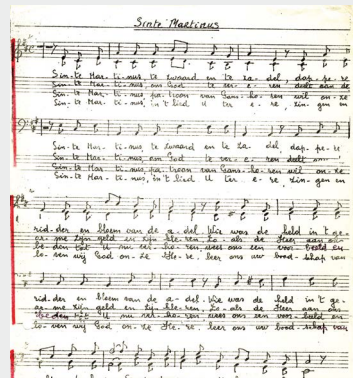 Sinte Martinus
Sin-te Mar-ti-nus, te zwaard en te za-del, dap-pe-re
Sin-te Mar-ti-nus, om God te ver-e-ren deelt aan de
Sin-te Mar-ti-nus, pa-troon van ho-ren wil on-ze
Sin-te Mar-ti-nus, in't lied U ter e-re, zin-gen en
Sin-te Mar-ti-nus, te zwaard en te za-del, dap-pe-re
Sin-te Mar-ti-nus, om God te ver-e-ren deelt
Sin-te Mar-ti-nus, pa-troon van ho-ren wil on-ze
Sin-te Mar-ti-nus, in't lied U ter e-re zin-gen en
rid-der en bloem van de a-del. Wie was de held in't ge-
ar-me zijn geld en zijn kle-ren, zo-als de Heer aan ons
U nu ver-ho-ren wees ons een voor-beeld en
lo-ven wij God on-ze He-re, leer ons uw bood-schap van
rid-der en bloem van de a-del. Wie was de held in't ge-
ar-me zijn geld en zijn kle-ren, zo-als de Heer aan ons
U nu ver-ho-ren wees ons een voor-beeld en
lo-ven wij God on-ze He-re, leer ons uw bood-schap van